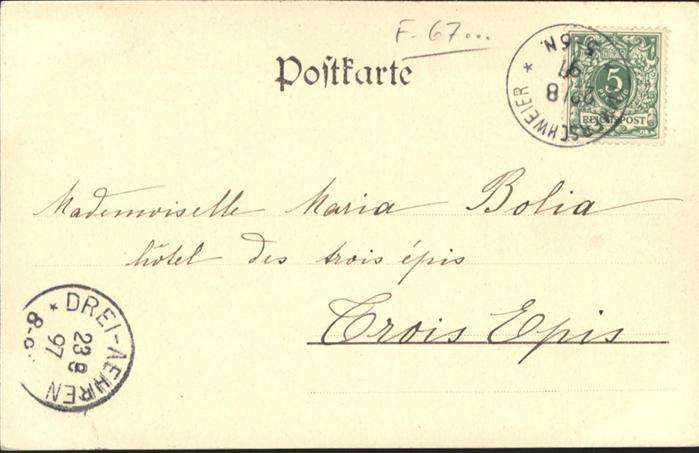 F. 67...
Postkarte
5
REICHSPOST
ERSCHWEIER *
23/8
97
5-6N.
Mademoiselle Maria Bolia
hôtel des trois épis
Trois Epis
* DREI-AEHREN
23 8
97
8-9